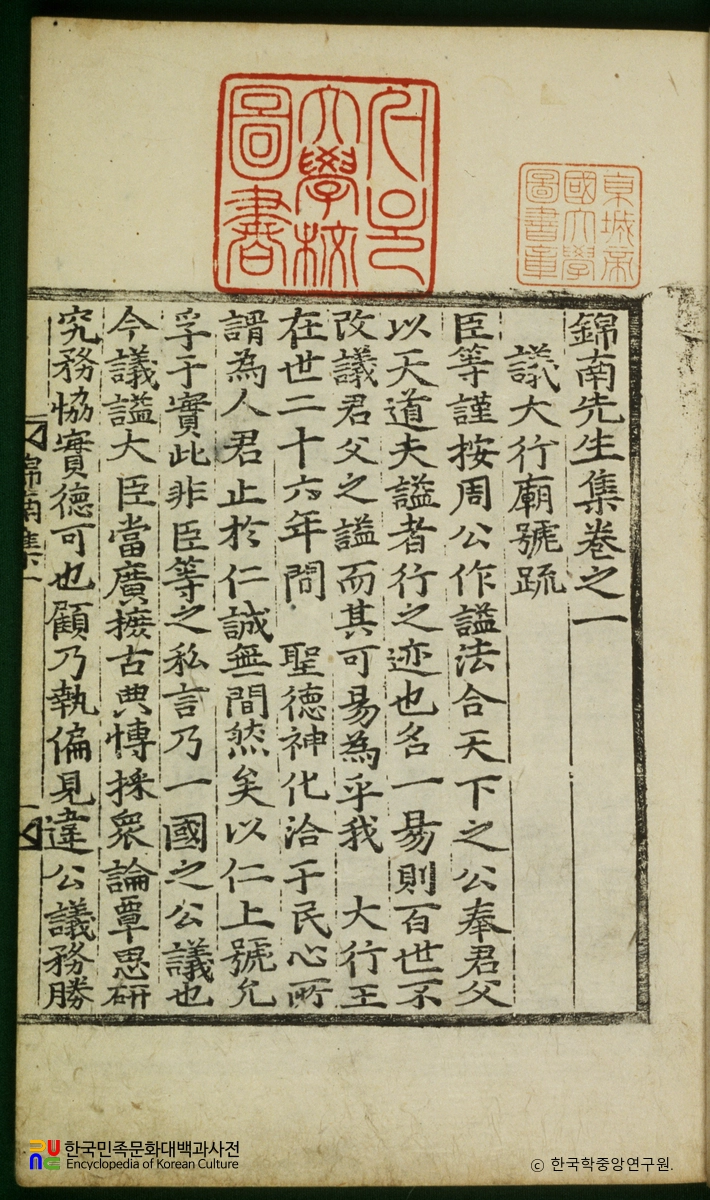 錦南先生集卷之一
議大行廟號䟽
臣等謹按周公作諡法合天下之公奉君父
以天道夫諡者行之迹也名一易則百世不
改議君父之諡而其可易為乎我 大行王
在世二十六年間 聖德神化洽于民心所
謂為人君止於仁誠無間然矣以仁上號允
孚于實此非臣等之私言乃一國之公議也
今議諡大臣當廣摭古典博採衆論覃思硏
究務恊實德可也顧乃執偏見違公議務勝
錦南集一
서울
大學校
圖書
東城帝
國大學
圖書章
한국민족문화대백과사전
Encyclopedia of Korean Culture
ⓒ 한국학중앙연구원.